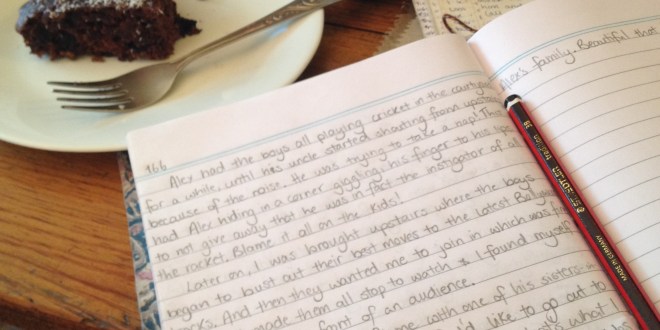 166
Alex had the boys all playing cricket in the courtyard
for a while, until his uncle started shouting from upstairs
because of the noise. He was trying to take a nap! This
had Alex hiding in a corner giggling, his finger to his lips
to not give away that he was in fact the instigator of all
the racket. Blame it all on the kids!
Later on, I was brought upstairs where the boys
began to bust out their best moves to the latest Bollywood
And then they wanted me to join in which was fine
made them all stop to watch & I found myself
front of an audience.
one with one of his sisters-in
like to go out to
what I
family. Beautiful that
STAEDTLER
tradition
MADE IN GERMANY